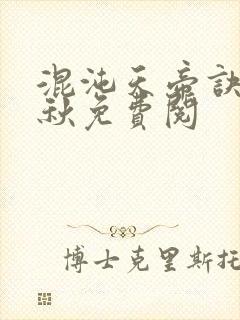 混沌天帝訣
秋免費閱
博士克里斯托